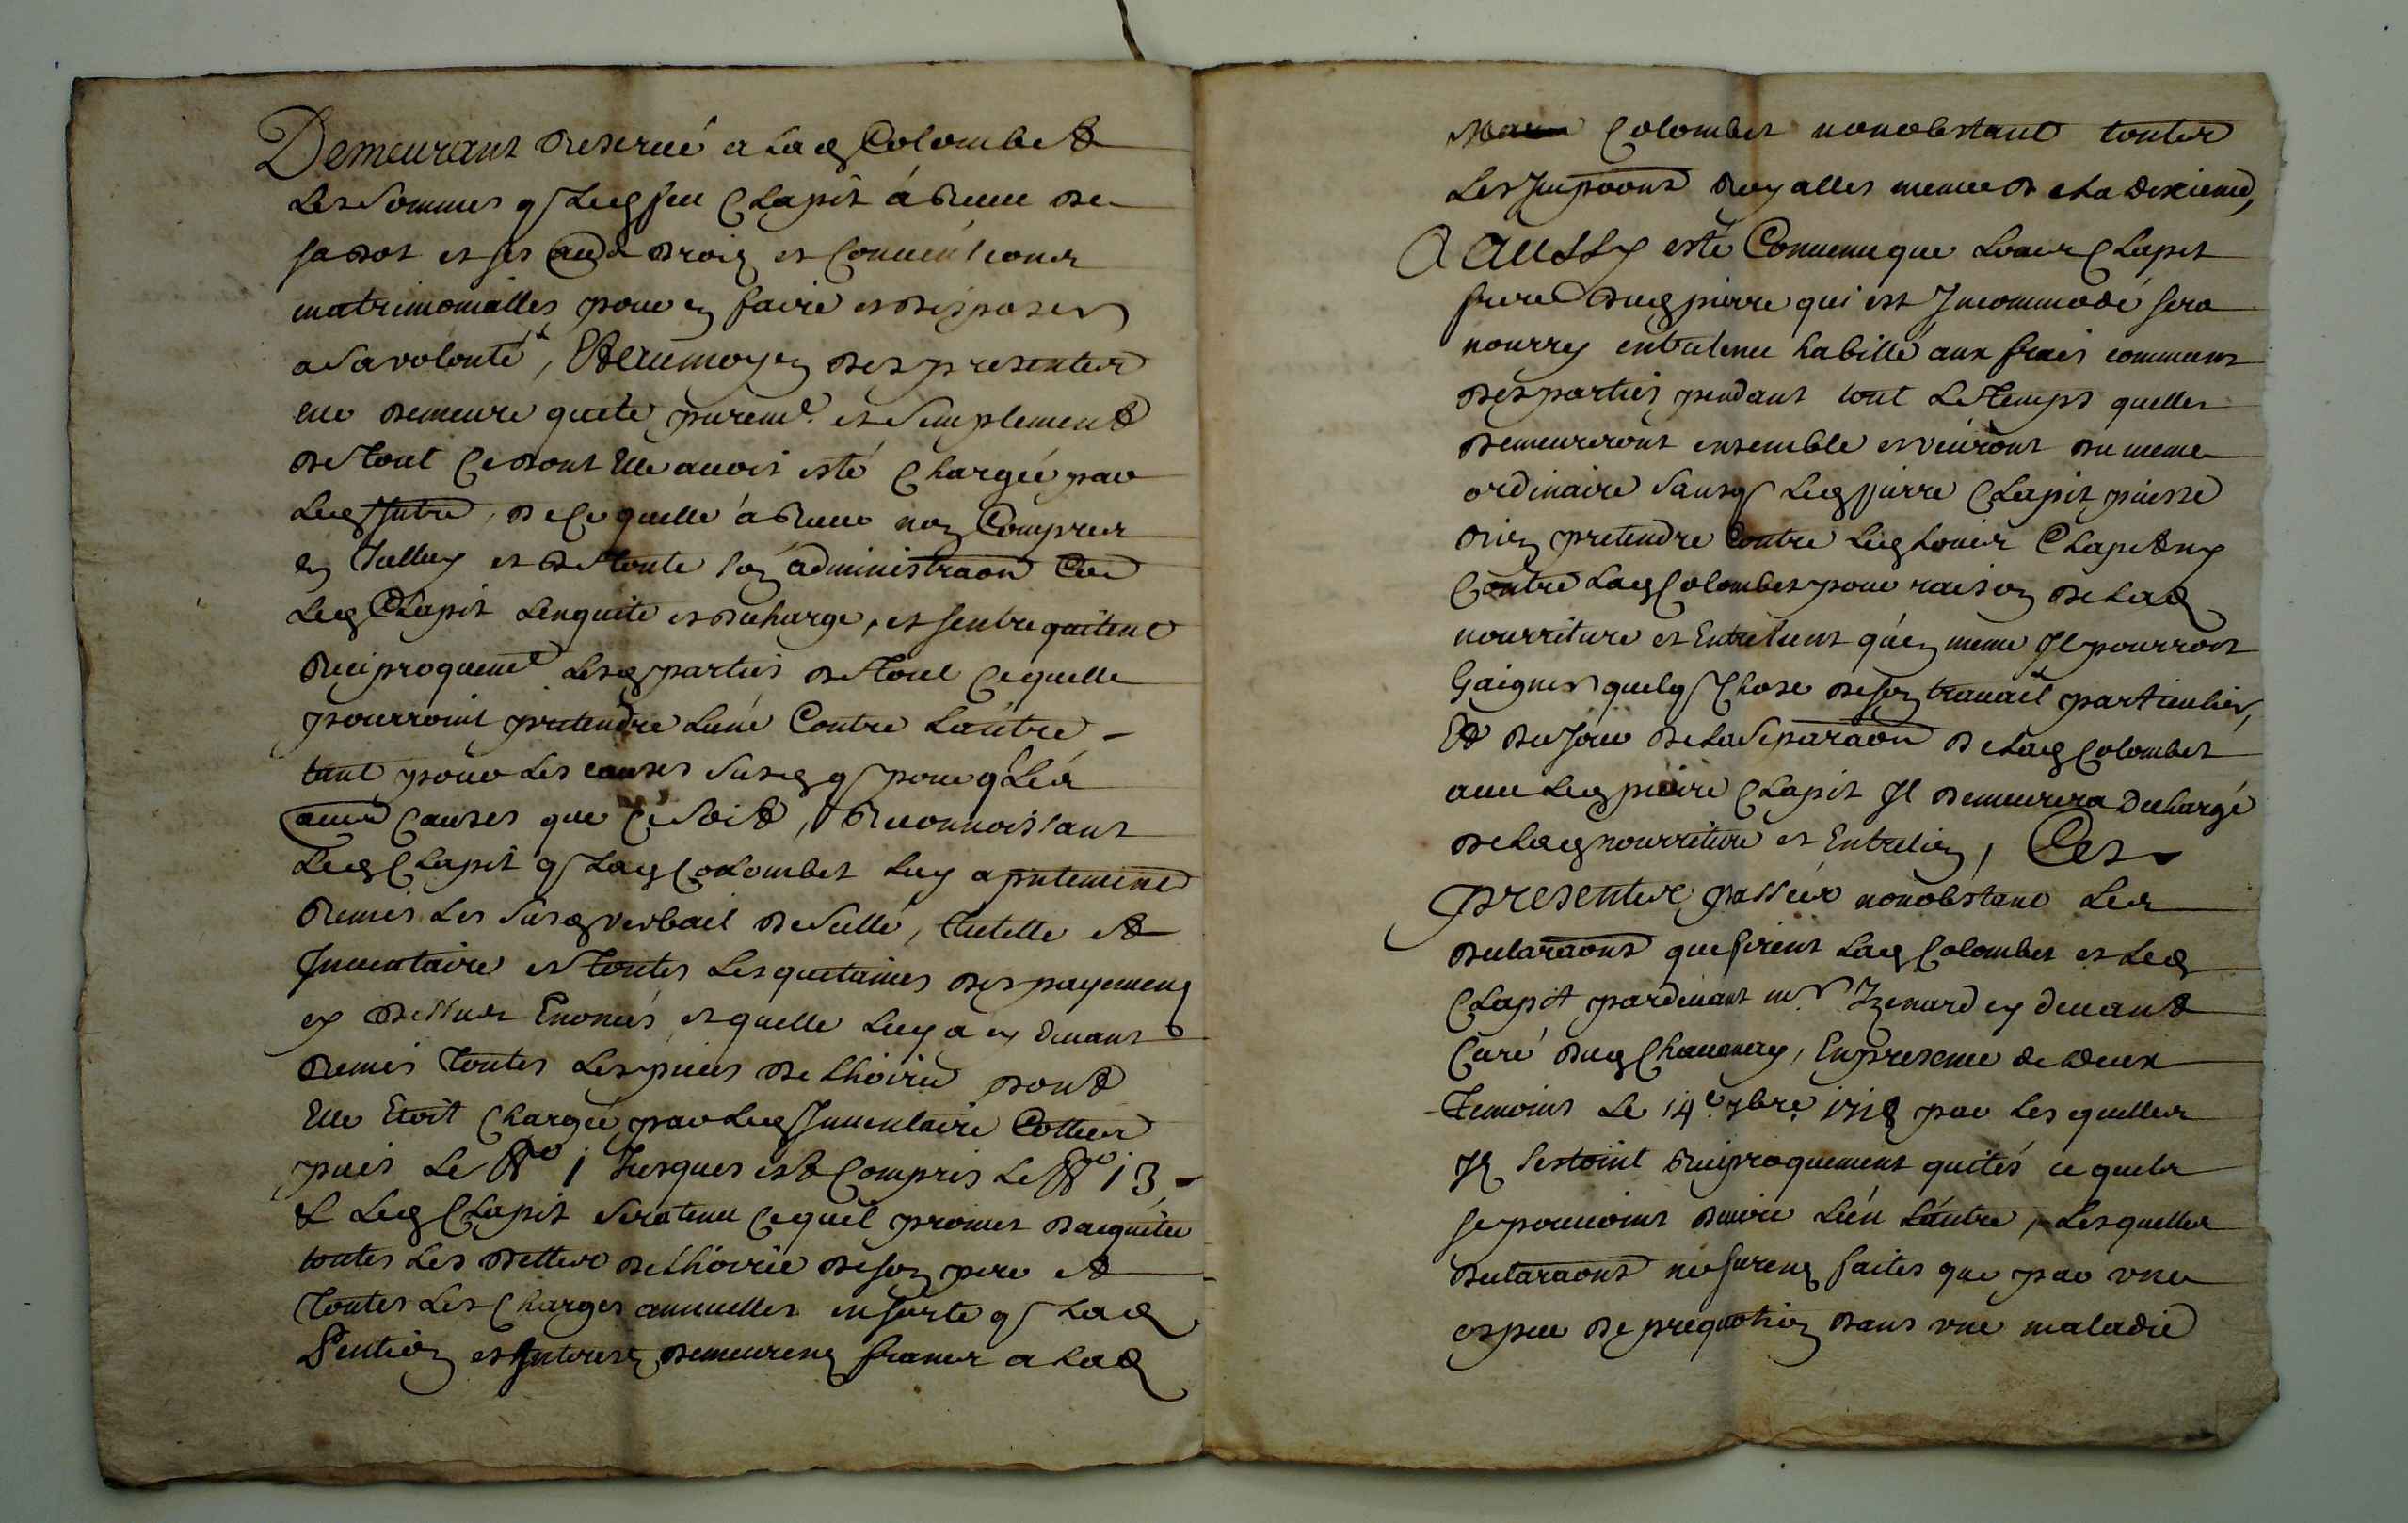 Demeurant reservé a lad Colombet
les sommes q led feu Clapit a receu de
sa dot et ses aud droig et conventions
matrimonialles pour en faire et disposer
a sa volonté, Et au moyen des presentes
elle demeure quite purem.t et simplement
de tout ce dont elle avoit esté chargée par
led Invre, de ce quelle a receu non compris
en Icelluy et de toute son administraon Car
led Clapit lenquite et decharge, et sentrequitent
reciproquemt lesd parties de tout ce quelle
pourroint pretendre lune contre lautre
tant pour les causes susd q pour q les
aures causes que ce soit, Reconnoissant
led Clapit q lad Colombet luy a pntement
remis les susd verbail de sullé, tutelle et
Inventaire et toutes les quitances des payemens
cy dessus Enoncés et quelle luy a cy devant
remis toutes les pieces de lhoirie dont
elle Etoit chargée par led Inventaire Cottées
puis le N.o 1 Jusques et compris le N.o 13
& led Clapit sera tenu ce quil promet dacquiter
toutes les dettes de lhoirie de son pere et
toutes les charges annuelles en sorte q lad
Pention et Interest demeurent francs a lad
Colombet nonobstant toutes
les Impoons Royalles meme de la dixieme,
A Aussy esté Convenu que Louis Clapit
frere dud pierre qui est Incommodé sera
nourry entretenu habillé aux frais communs
des parties pendant tout le temps quelles
demeureront ensemble et vivront du meme
ordinaire sans q led pierre Clapit puisse
rien pretendre contre led Louis Clapit ny
contre lad Colombet pour raison de lad
nourriture et Entretient quen meme Il pourroit
Gaigner quelq chose de son travail particulier,
Et du jour de la Separaon de lad Colombet
avec led pierre Clapit Il demeurera dechargé
de lad nourriture et Entretien, Ces
presentes passées nonobstant les
declaraons que firent lad Colombet et led
Clapit pardevant m.r Izenard cy devant
Curé dud Chavanay, En presence de deux
Temoins le 14.e 7bre 1718 par lesquelles
Ils sestoint reciproquement quités ce quils
se pouvoint devoir lun lautre, lesquelles
declaraons ne furent faites que par une
espece de prequotion dans une maladie